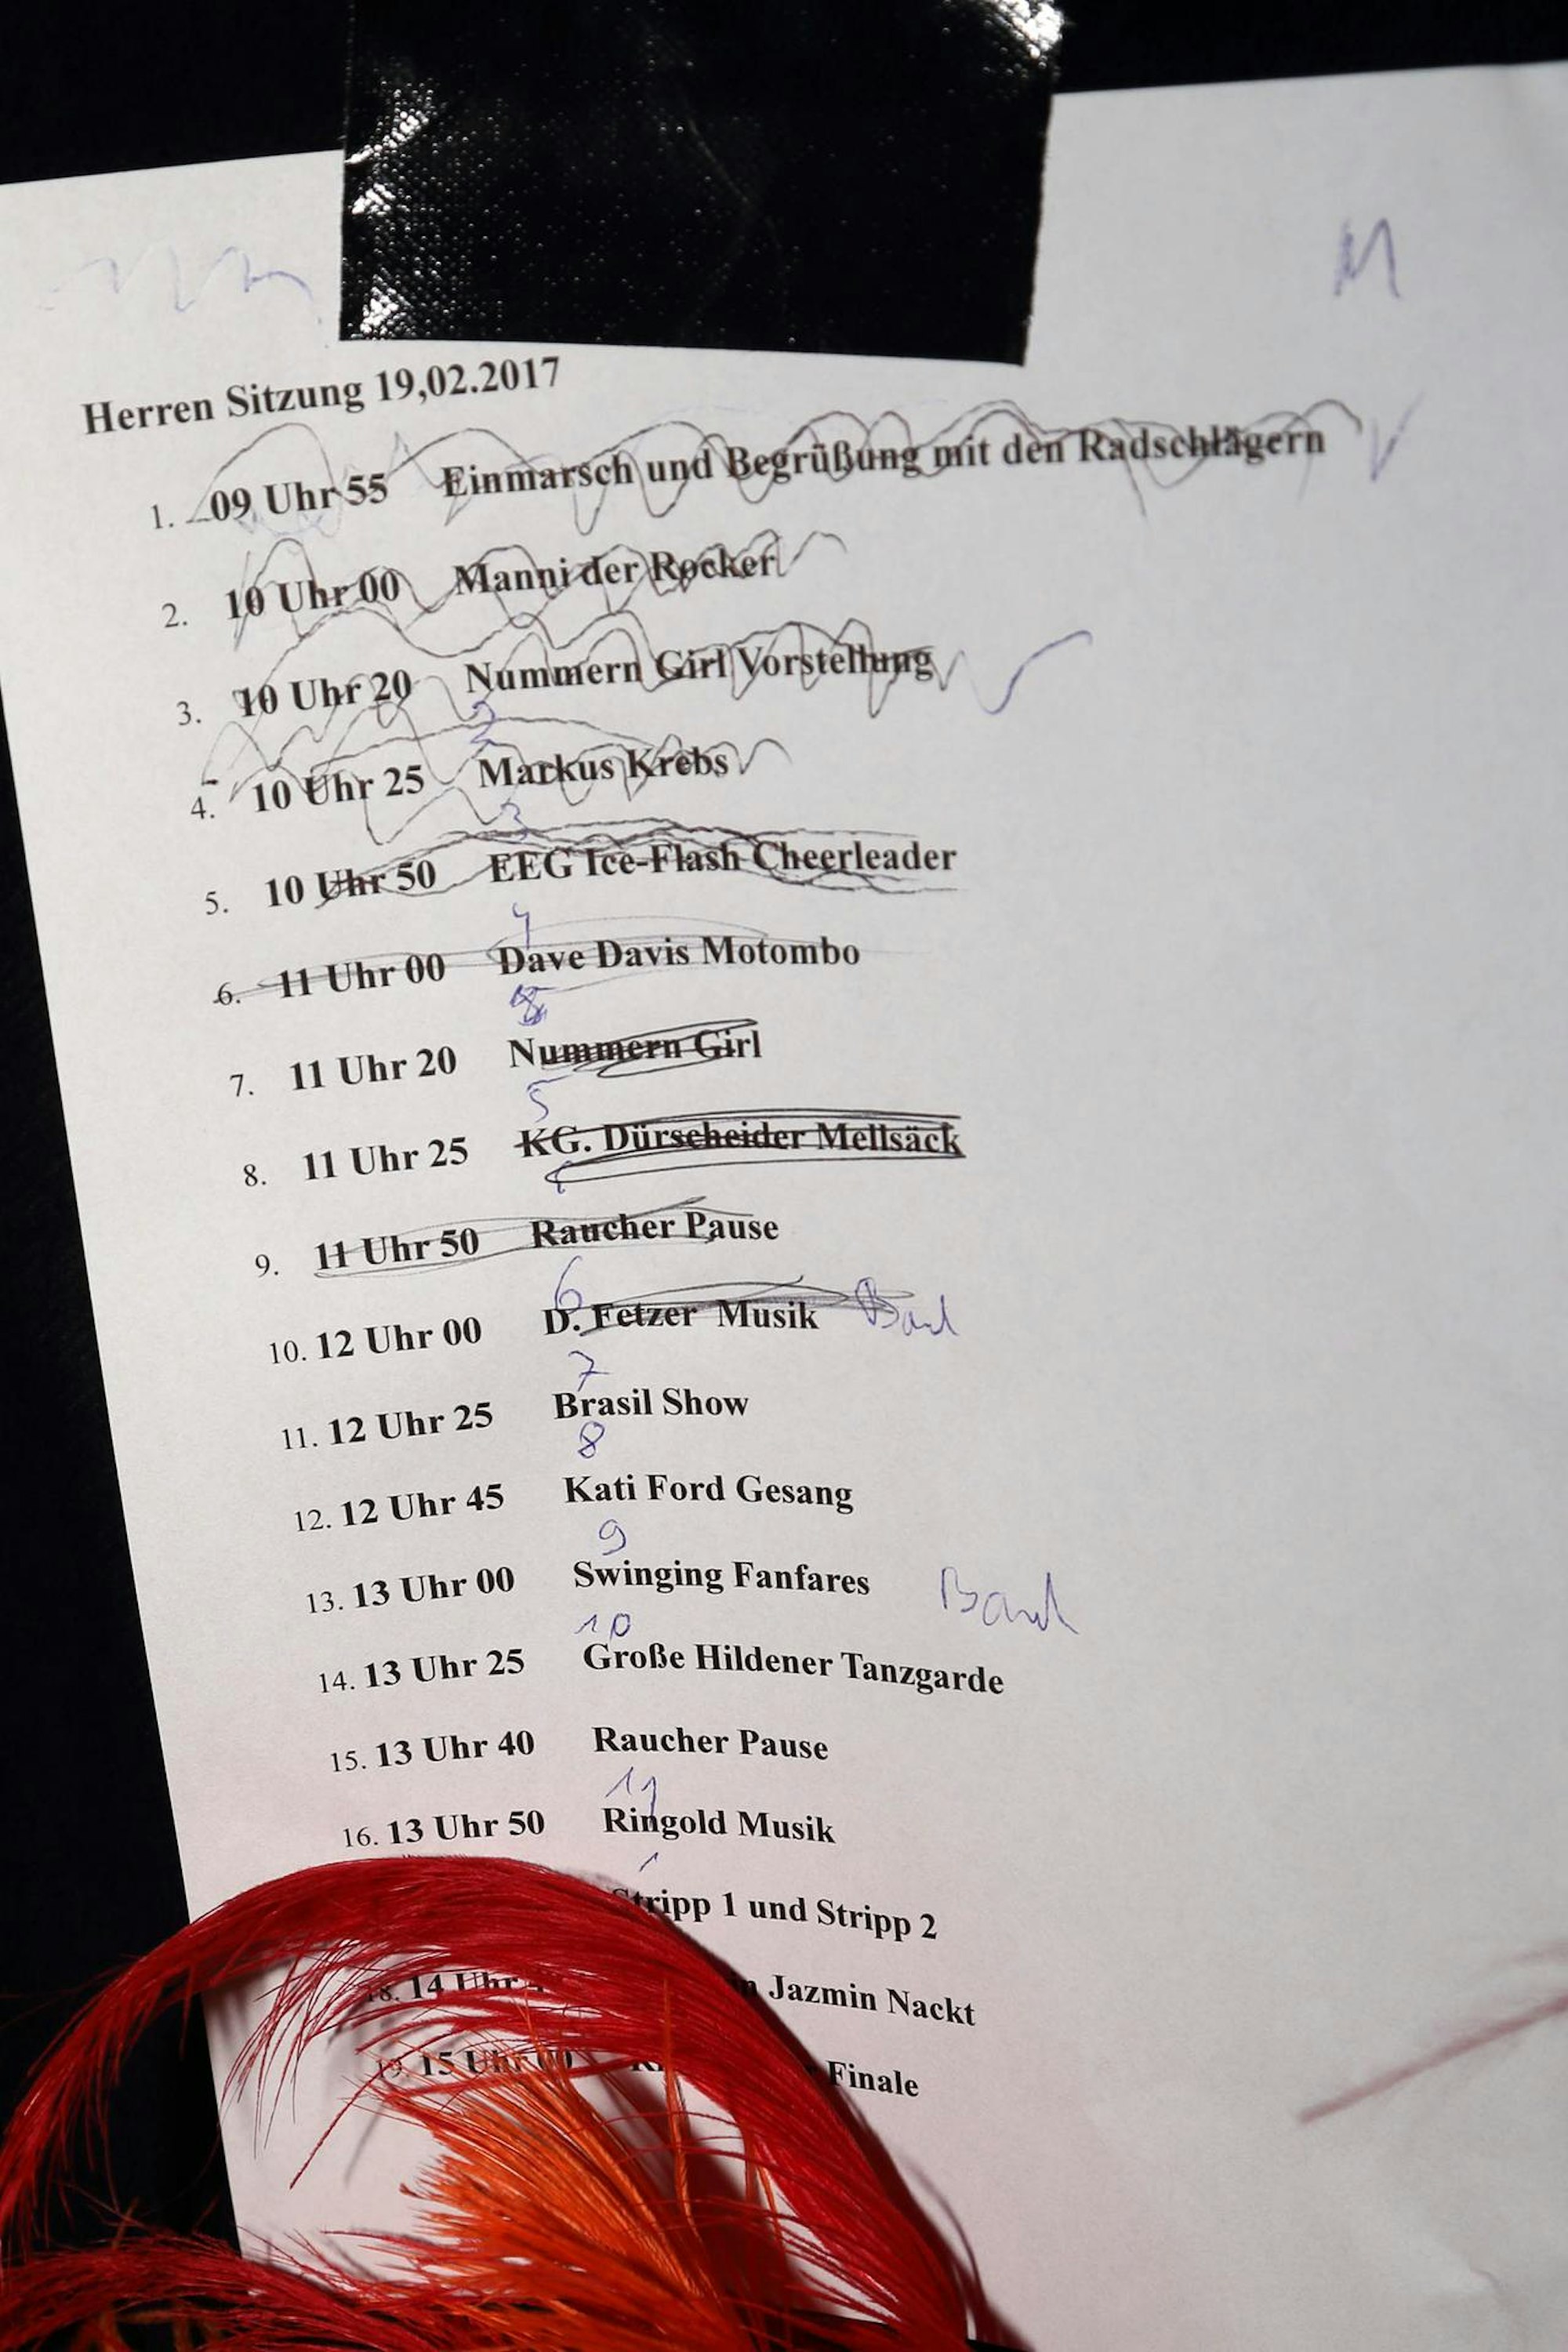 M
Herren Sitzung 19,02.2017
1. 09 Uhr 55 Einmarsch und Begrüßung mit den Radschlägern
2. 10 Uhr 00 Manni der Rocker
3. 10 Uhr 20 Nummern Girl Vorstellung
2
4. 10 Uhr 25 Markus Krebs
3
5. 10 Uhr 50 EEG Ice-Flash Cheerleader
4
6. 11 Uhr 00 Dave Davis Motombo
7. 11 Uhr 20 Nummern Girl
5
8. 11 Uhr 25 KG. Dürscheider Mellsäck
9. 11 Uhr 50 Raucher Pause
6
10. 12 Uhr 00 D. Fetzer Musik Band
7
11. 12 Uhr 25 Brasil Show
8
12. 12 Uhr 45 Kati Ford Gesang
9
13. 13 Uhr 00 Swinging Fanfares Band
10
14. 13 Uhr 25 Große Hildener Tanzgarde
15. 13 Uhr 40 Raucher Pause
11
16. 13 Uhr 50 Ringold Musik
Stripp 1 und Stripp 2
18. 14 Uhr Jazmin Nackt
19. 15 Uhr 00 Finale